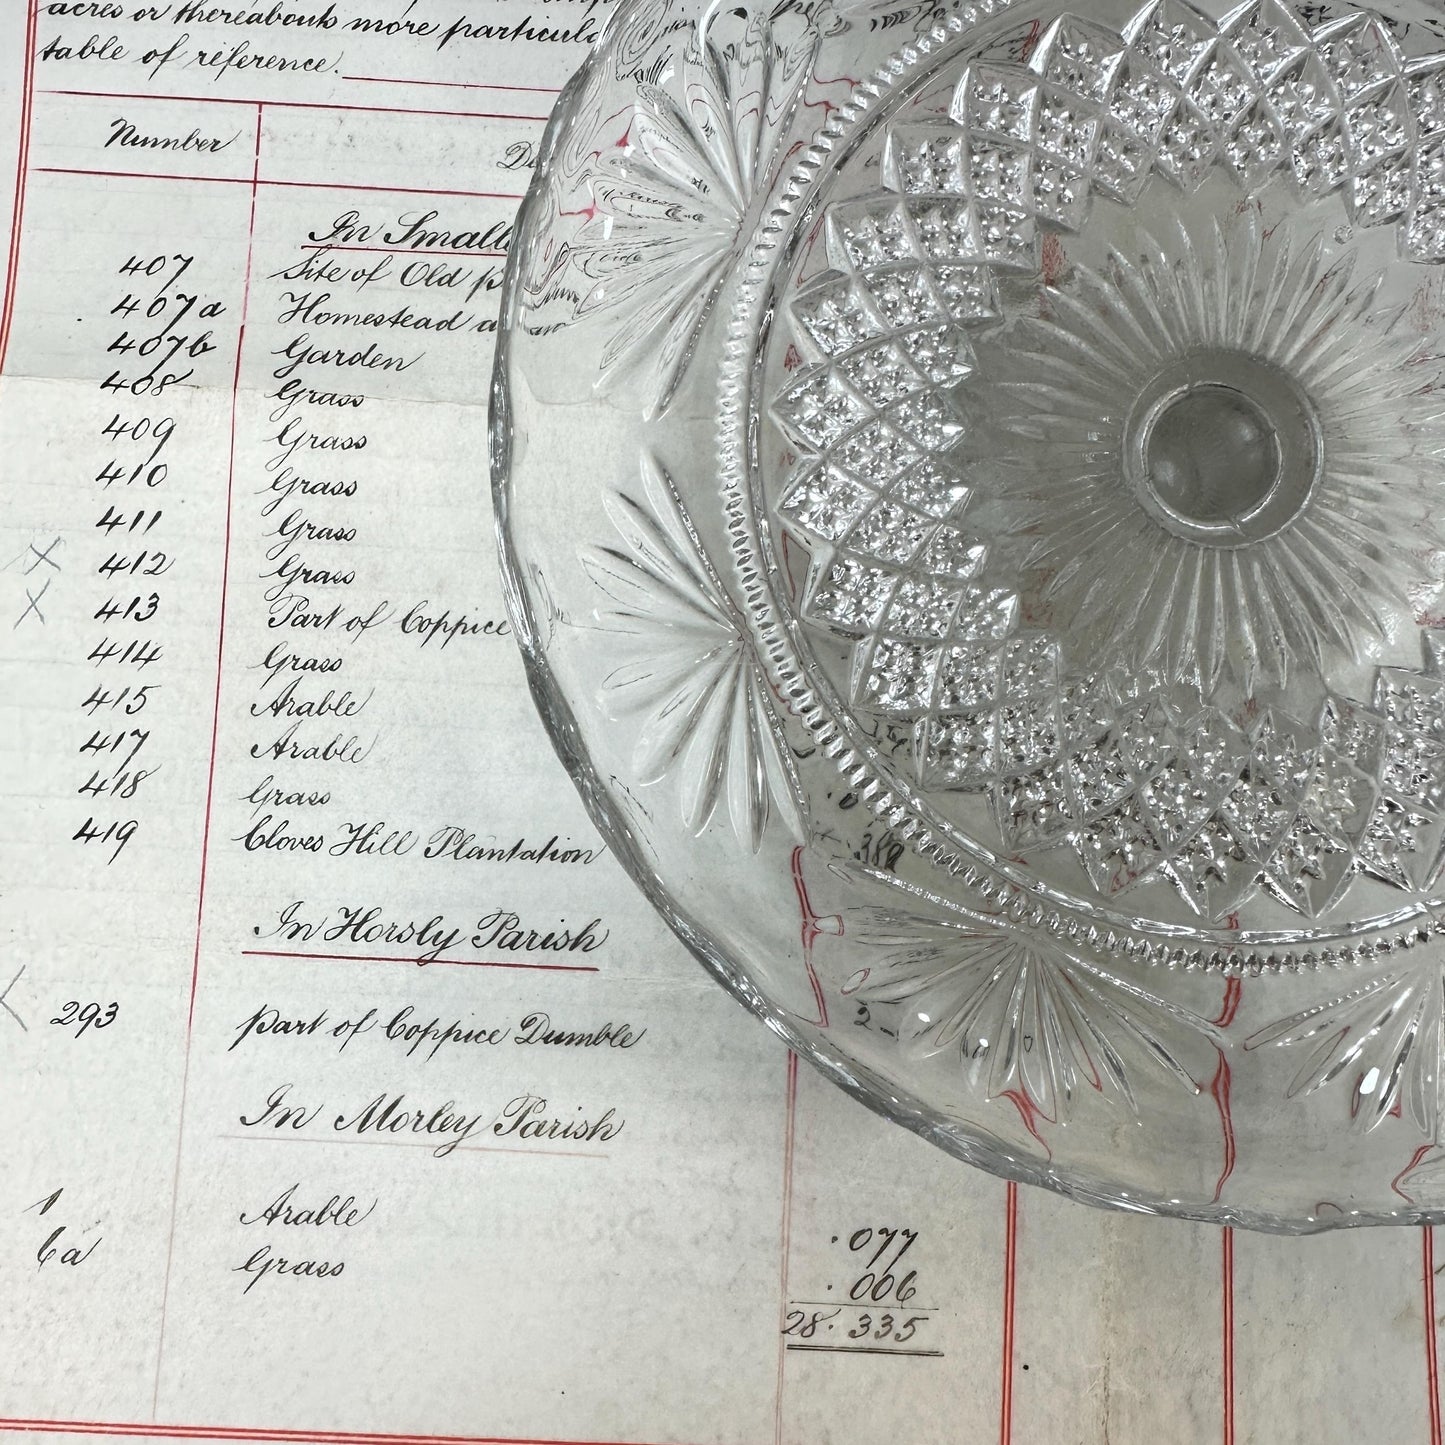 acres or thereabouts more
table of reference.
Number
In
407 Site of Old
407a Homestead
407b Garden
408 Grass
409 Grass
410 Grass
411 Grass
X 412 Grass
X 413 Part of Coppice
414 Grass
415 Arable
417 Arable
418 Grass
419 Cloves Hill Plantation
In Horsly Parish
293 part of Coppice Dumble
In Morley Parish
1 Arable .077
6a Grass .006
28.335